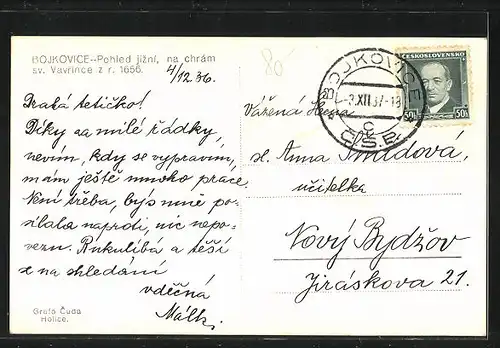 BOJKOVICE–Pohled jižní, na chrám
sv. Vavřince z r. 1656.
4/12.36.
80
Drahá tetičko!
Díky za milé řádky,
nevím, kdy se vypravím,
mám ještě mnoho práce.
Není třeba, bys mně po-
sílala naproti, nic nepo-
vezu. Rukulíbá a těší
se na shledání
vděčná
Grafo Čuda
Holice.
BOJKOVICE
ČESKOSLOVENSKO
50h 50h
Vážená
sl. Anna
učitelka
Nový Bydžov
Jiráskova 21.